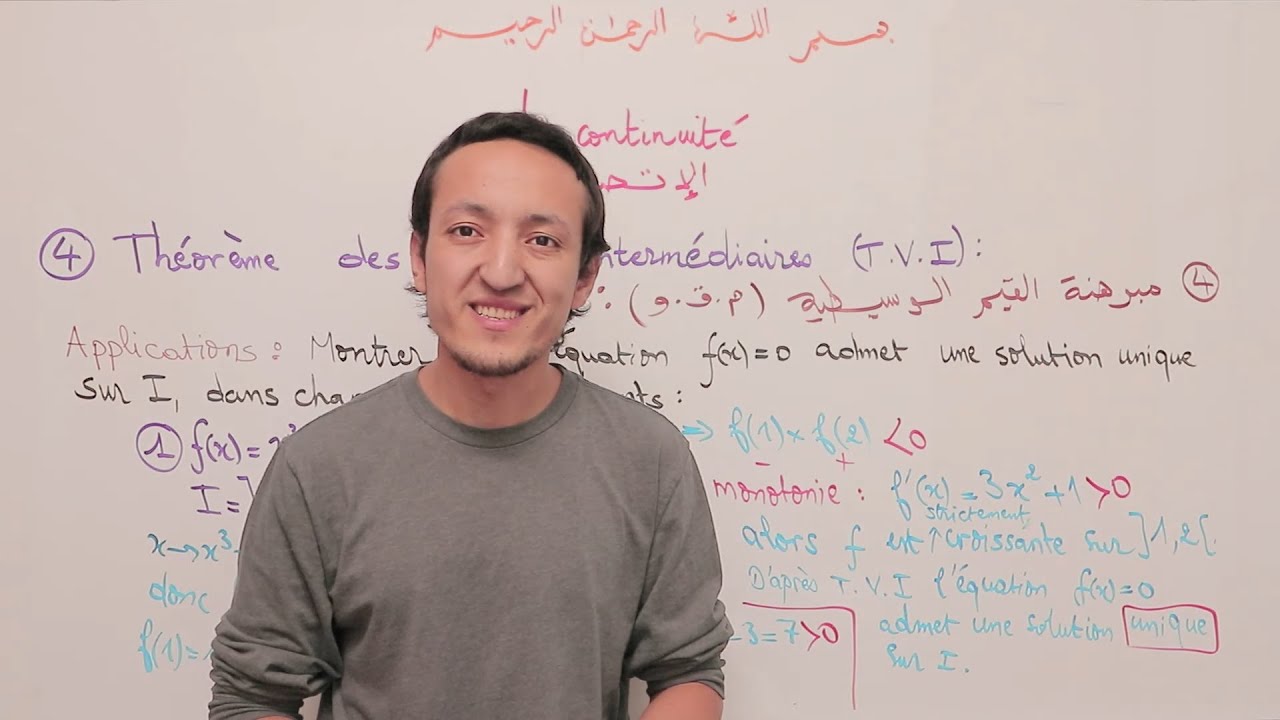 بسم الله الرحمان الرحيم
continuité
④ Théorème des intermédiaires (T.V.I) :
④ مبرهنة القيم الوسيطية (م.ق.و) :
Applications : Montrer équation f(x)=0 admet une solution unique
sur I, dans :
① f(x)= => f(1)×f(2) <0
- +
I=] monotonie : f'(x)=3x²+1>0
strictement
x→x³ alors f est ↑croissante sur ]1,2[.
donc D'après T.V.I l'équation f(x)=0
f(1)= -3=7>0 admet une solution unique
sur I.